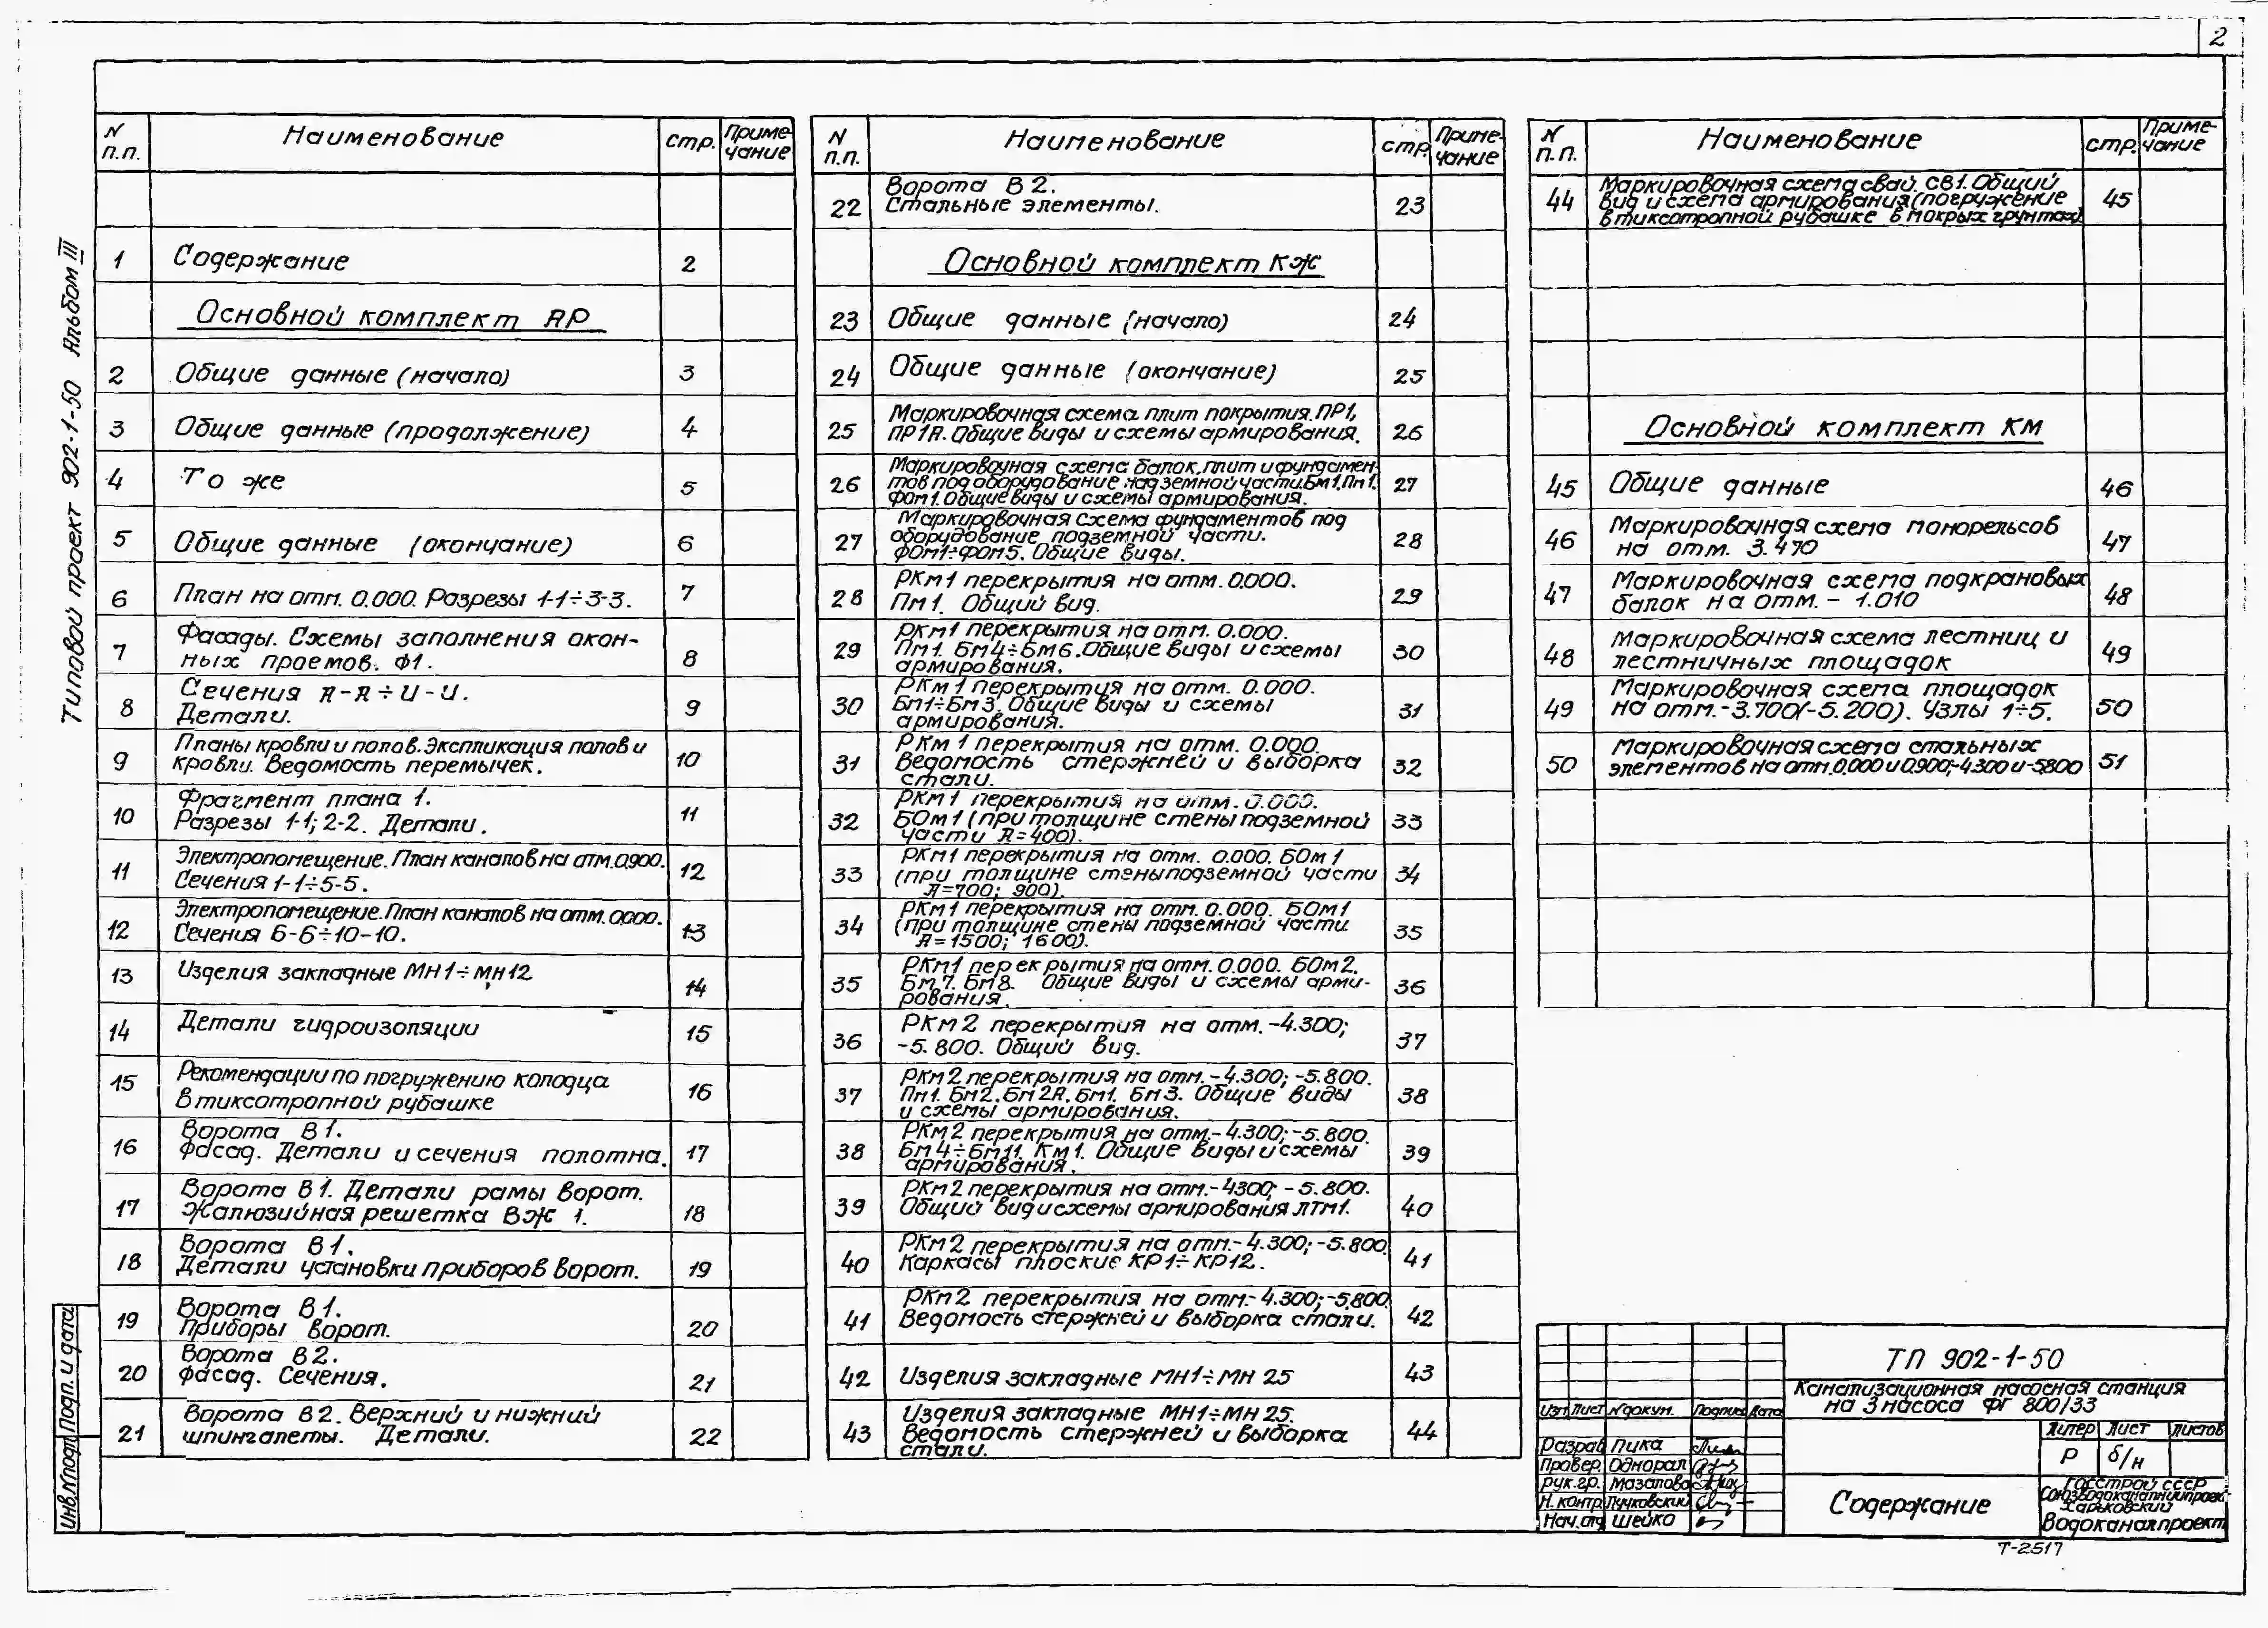 2
Типовой проект 902-1-50 Альбом III
N п.п. Наименование стр. Примечание
1 Содержание 2
Основной комплект АР
2 Общие данные (начало) 3
3 Общие данные (продолжение) 4
4 То же 5
5 Общие данные (окончание) 6
6 План на отм. 0.000. Разрезы 1-1÷3-3. 7
7 Фасады. Схемы заполнения окон-
ных проемов. Ф1. 8
8 Сечения А-А÷И-И.
Детали. 9
9 Планы кровли и полов. Экспликация полов и
кровли. Ведомость перемычек. 10
10 Фрагмент плана 1.
Разрезы 1-1; 2-2. Детали. 11
11 Электропомещение. План каналов на отм. 0.900.
Сечения 1-1÷5-5. 12
12 Электропомещение. План каналов на отм. 0.000.
Сечения 6-6÷10-10. 13
13 Изделия закладные МН1÷МН12 14
14 Детали гидроизоляции 15
15 Рекомендации по погружению колодца
в тиксотропной рубашке 16
16 Ворота В1.
Фасад. Детали и сечения полотна. 17
17 Ворота В1. Детали рамы ворот.
Жалюзийная решетка ВЖ 1. 18
18 Ворота В1.
Детали установки приборов ворот. 19
19 Ворота В1.
Приборы ворот. 20
20 Ворота В2.
Фасад. Сечения. 21
21 Ворота В2. Верхний и нижний
шпингалеты. Детали. 22
N п.п. Наименование стр. Примечание
22 Ворота В2.
Стальные элементы. 23
Основной комплект КЖ
23 Общие данные (начало) 24
24 Общие данные (окончание) 25
25 Маркировочная схема плит покрытия. ПР1,
ПР1А. Общие виды и схемы армирования. 26
26 Маркировочная схема балок, плит и фундамен-
тов под оборудование надземной части. Бм1. Пм1.
ФОм1. Общие виды и схемы армирования. 27
27 Маркировочная схема фундаментов под
оборудование подземной части.
ФОм1÷ФОм5. Общие виды. 28
28 РКм1 перекрытия на отм. 0.000.
Пм1. Общий вид. 29
29 РКм1 перекрытия на отм. 0.000.
Пм1. Бм4÷Бм6. Общие виды и схемы
армирования. 30
30 РКм1 перекрытия на отм. 0.000.
Бм1÷Бм3. Общие виды и схемы
армирования. 31
31 РКм1 перекрытия на отм. 0.000.
Ведомость стержней и выборка
стали. 32
32 РКм1 перекрытия на отм. 0.000.
БОм1 (при толщине стены подземной
части А=400). 33
33 РКм1 перекрытия на отм. 0.000. БОм1
(при толщине стены подземной части
А=700; 900). 34
34 РКм1 перекрытия на отм. 0.000. БОм1
(при толщине стены подземной части
А=1500; 1600). 35
35 РКм1 перекрытия на отм. 0.000. БОм2.
Бм7. Бм8. Общие виды и схемы арми-
рования. 36
36 РКм2 перекрытия на отм. -4.300;
-5.800. Общий вид. 37
37 РКм2 перекрытия на отм. -4.300; -5.800.
Пм1. Бм2. Бм2А. Бм1. Бм3. Общие виды
и схемы армирования. 38
38 РКм2 перекрытия на отм. -4.300; -5.800.
Бм4÷Бм11. Км1. Общие виды и схемы
армирования. 39
39 РКм2 перекрытия на отм. -4.300; -5.800.
Общий вид и схемы армирования ЛТм1. 40
40 РКм2 перекрытия на отм. -4.300; -5.800
Каркасы плоские КР1÷КР12. 41
41 РКм2 перекрытия на отм. -4.300; -5.800
Ведомость стержней и выборка стали. 42
42 Изделия закладные МН1÷МН 25 43
43 Изделия закладные МН1÷МН 25.
Ведомость стержней и выборка
стали. 44
N п.п. Наименование стр. Примечание
44 Маркировочная схема свай. СВ1. Общий
вид и схема армирования (погружение
в тиксотропной рубашке в мокрых грунтах). 45
Основной комплект КМ
45 Общие данные 46
46 Маркировочная схема монорельсов
на отм. 3.470 47
47 Маркировочная схема подкрановых
балок на отм. - 1.010 48
48 Маркировочная схема лестниц и
лестничных площадок 49
49 Маркировочная схема площадок
на отм. -3.700(-5.200). Узлы 1÷5. 50
50 Маркировочная схема стальных
элементов на отм. 0.000 и 0.900; -4.300 и -5.800 51
ТП 902-1-50
Канализационная насосная станция
на 3 насоса ФГ 800/33
Изм Лист N докум. Подпись Дата
Разраб Пика
Провер. Однорал
Рук.гр. Мазалова
Н. контр.
Нач.отд Шейко
Содержание
Литер Лист Листов
Р б/н
Госстрой СССР
Союзводоканалниипроект
Харьковский
Водоканалпроект
Т-2517
Инв.N подл Подп. и дата